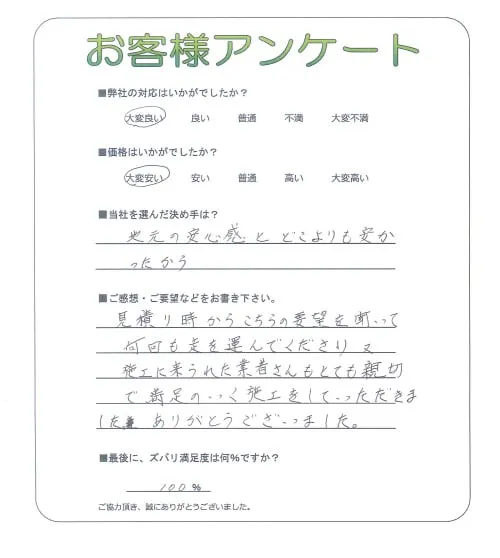 お客様アンケート
■弊社の対応はいかがでしたか？
大変良い 良い 普通 不満 大変不満
■価格はいかがでしたか？
大変安い 安い 普通 高い 大変高い
■当社を選んだ決め手は？
地元の安心感と どこよりも安か
ったから
■ご感想・ご要望などをお書き下さい。
見積り時からこちらの要望を断って
何回も足を運んでくださり 又
施工に来られた業者さんもとても親切
で 満足のいく施工をしていただきま
した。ありがとうございました。
■最後に、ズバリ満足度は何％ですか？
100％
ご協力頂き、誠にありがとうございました。